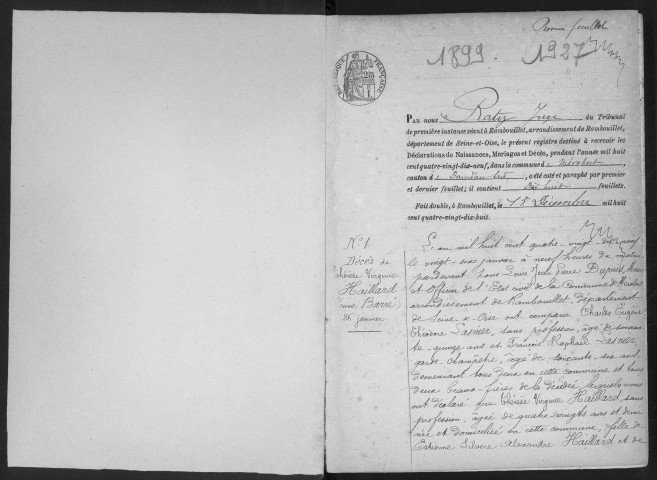 Premier feuillet
1899 - 1927
RÉPUBLIQUE FRANÇAISE
PAR nous Juge du Tribunal
de première instance séant à Rambouillet, arrondissement de Rambouillet,
département de Seine-et-Oise, le présent registre destiné à recevoir les
Déclarations de Naissances, Mariages et Décès, pendant l'année mil huit
cent quatre-vingt-dix-neuf, dans la commune d
canton d , a été coté et paraphé par premier
et dernier feuillet; il contient Dix huit feuillets.
Fait double, à Rambouillet, le 15 Décembre mil huit
cent quatre-vingt-dix-huit.
N° 1
Décès de
Thérèse Virginie
Haillard
Barré
26 janvier
L'an mil huit cent quatre-vingt-dix-neuf
le vingt-six janvier à neuf heures du matin
pardevant Nous Louis Jean Pierre Dupuis Maire
et Officier de l'Etat civil de la Commune d
arrondissement de Rambouillet département
de Seine-et-Oise ont comparu Charles Eugène
Théodore Lasnier, sans profession, âgé de soixan-
te-quinze ans et François Raphaël Lasnier
garde-champêtre, âgé de soixante-six ans,
demeurant tous deux en cette commune et tous
deux beaux-frères de la décédée, lesquels nous
ont déclaré que Thérèse Virginie Haillard, sans
profession, âgée de quatre vingts ans et demi
née et domiciliée en cette commune, fille de
Etienne Silvère Alexandre Haillard et de